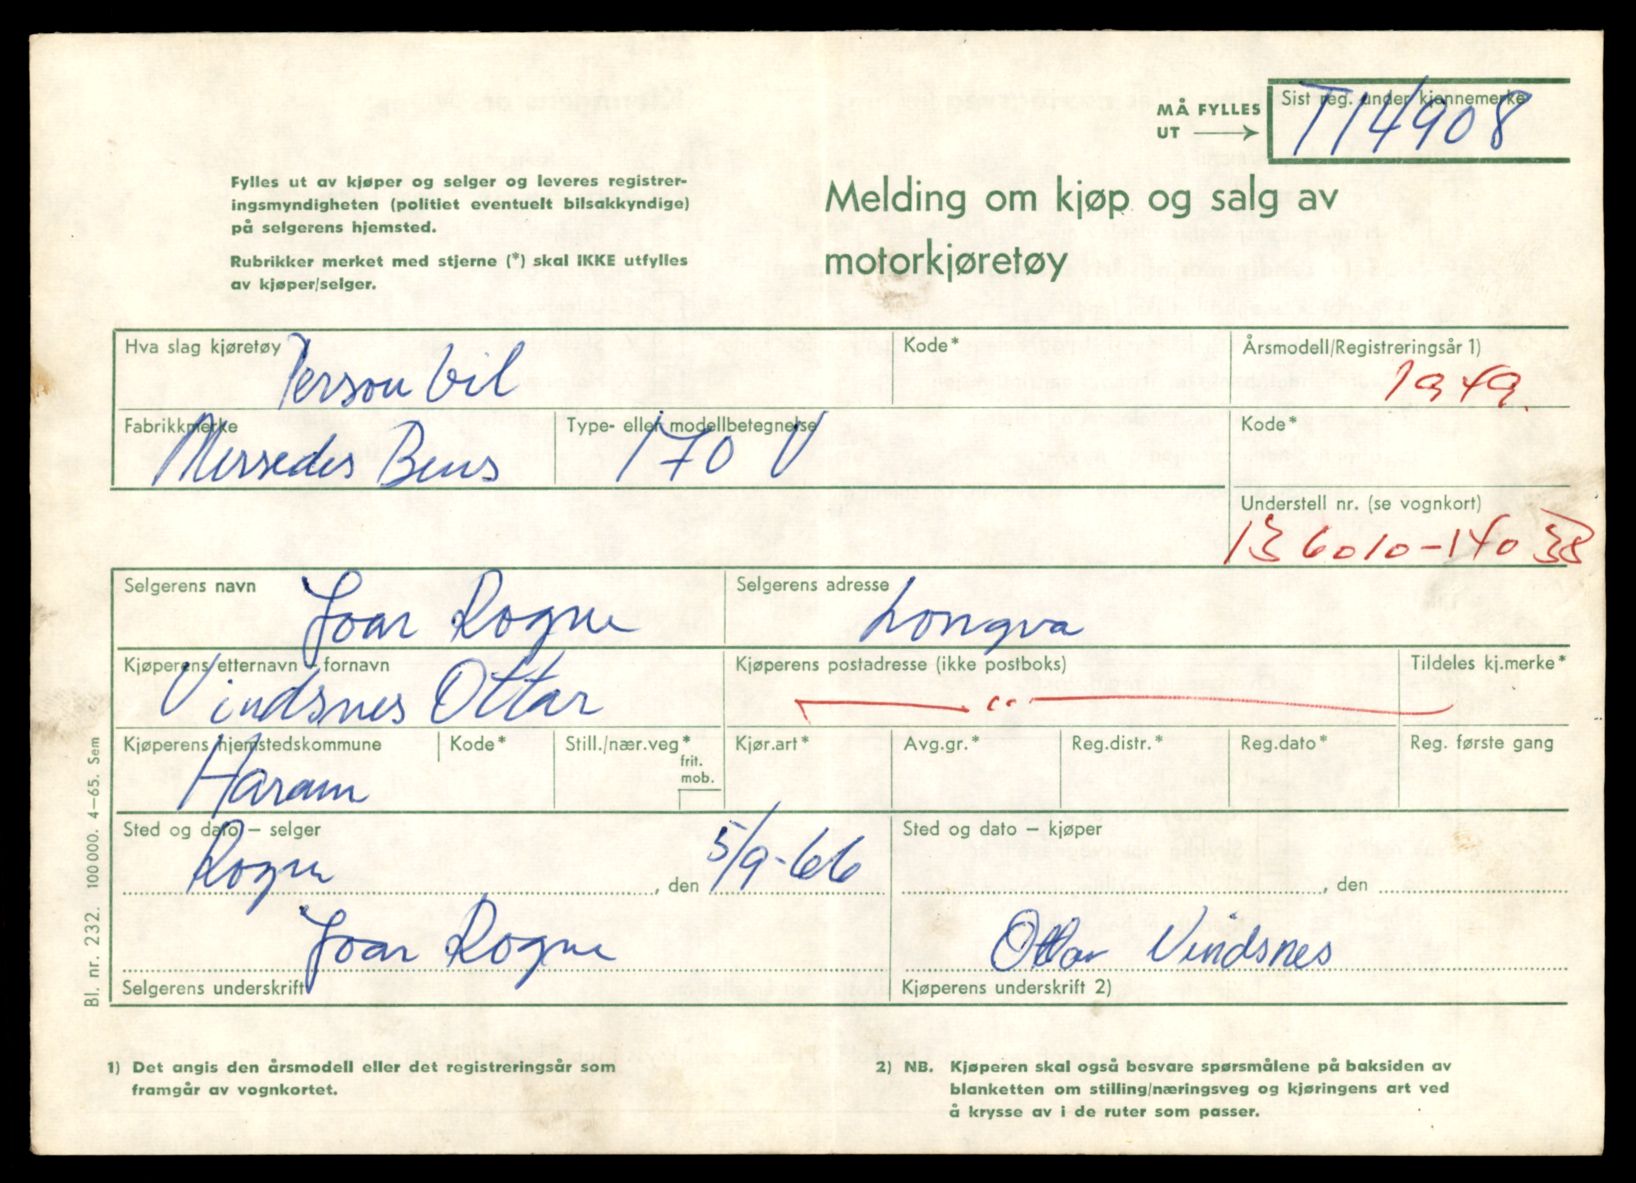 MÅ FYLLES
UT
Sist reg. under kjennemerke
T14908
Fylles ut av kjøper og selger og leveres registrer-
ingsmyndigheten (politiet eventuelt bilsakkyndige)
på selgerens hjemsted.
Rubrikker merket med stjerne (*) skal IKKE utfylles
av kjøper/selger.
Melding om kjøp og salg av
motorkjøretøy
Hva slag kjøretøy
Person bil
Kode*
Årsmodell/Registreringsår 1)
1949.
Fabrikkmerke
Mersedes Bens
Type- eller modellbetegnelse
170 V
Kode*
Understell nr. (se vognkort)
136010-14038
Selgerens navn
Joar Rogne
Selgerens adresse
Longva
Kjøperens etternavn – fornavn
Vindsnes Ottar
Kjøperens postadresse (ikke postboks)
— " —
Tildeles kj.merke*
Kjøperens hjemstedskommune
Haram
Kode*
Still./nær.veg*
frit.
mob.
Kjør.art*
Avg.gr.*
Reg.distr.*
Reg.dato*
Reg. første gang
Sted og dato – selger
Rogne, den 5/9-66
Sted og dato – kjøper
, den
Joar Rogne
Selgerens underskrift
Ottar Vindsnes
Kjøperens underskrift 2)
Bl. nr. 232. 100 000. 4–65. Sem
1) Det angis den årsmodell eller det registreringsår som
framgår av vognkortet.
2) NB. Kjøperen skal også besvare spørsmålene på baksiden av
blanketten om stilling/næringsveg og kjøringens art ved
å krysse av i de ruter som passer.